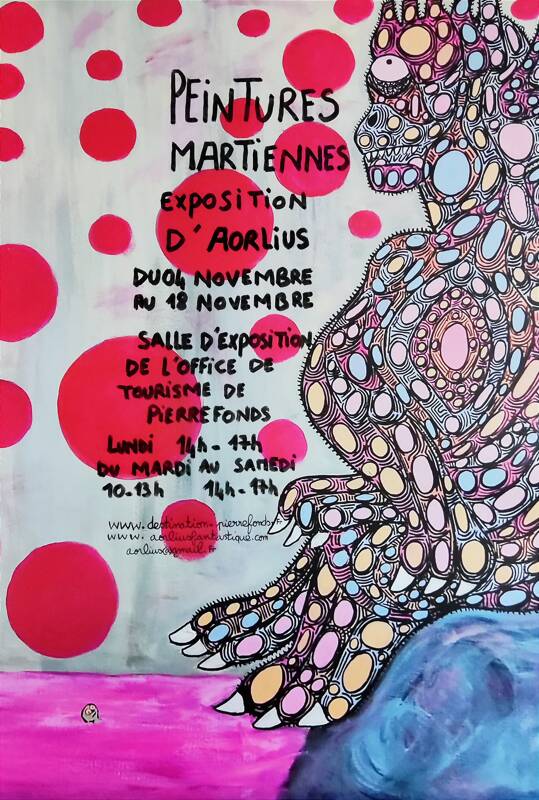 PEINTURES
MARTIENNES
EXPOSITION
D'AORLIUS
DU 04 NOVEMBRE
AU 18 NOVEMBRE
SALLE D'EXPOSITION
DE L'OFFICE DE
TOURISME DE
PIERREFONDS
LUNDI 14h-17h
DU MARDI AU SAMEDI
10-13h 14h-17h
www.destination-pierrefonds.fr
www.aorliusfantastique.com
aorlius@gmail.fr